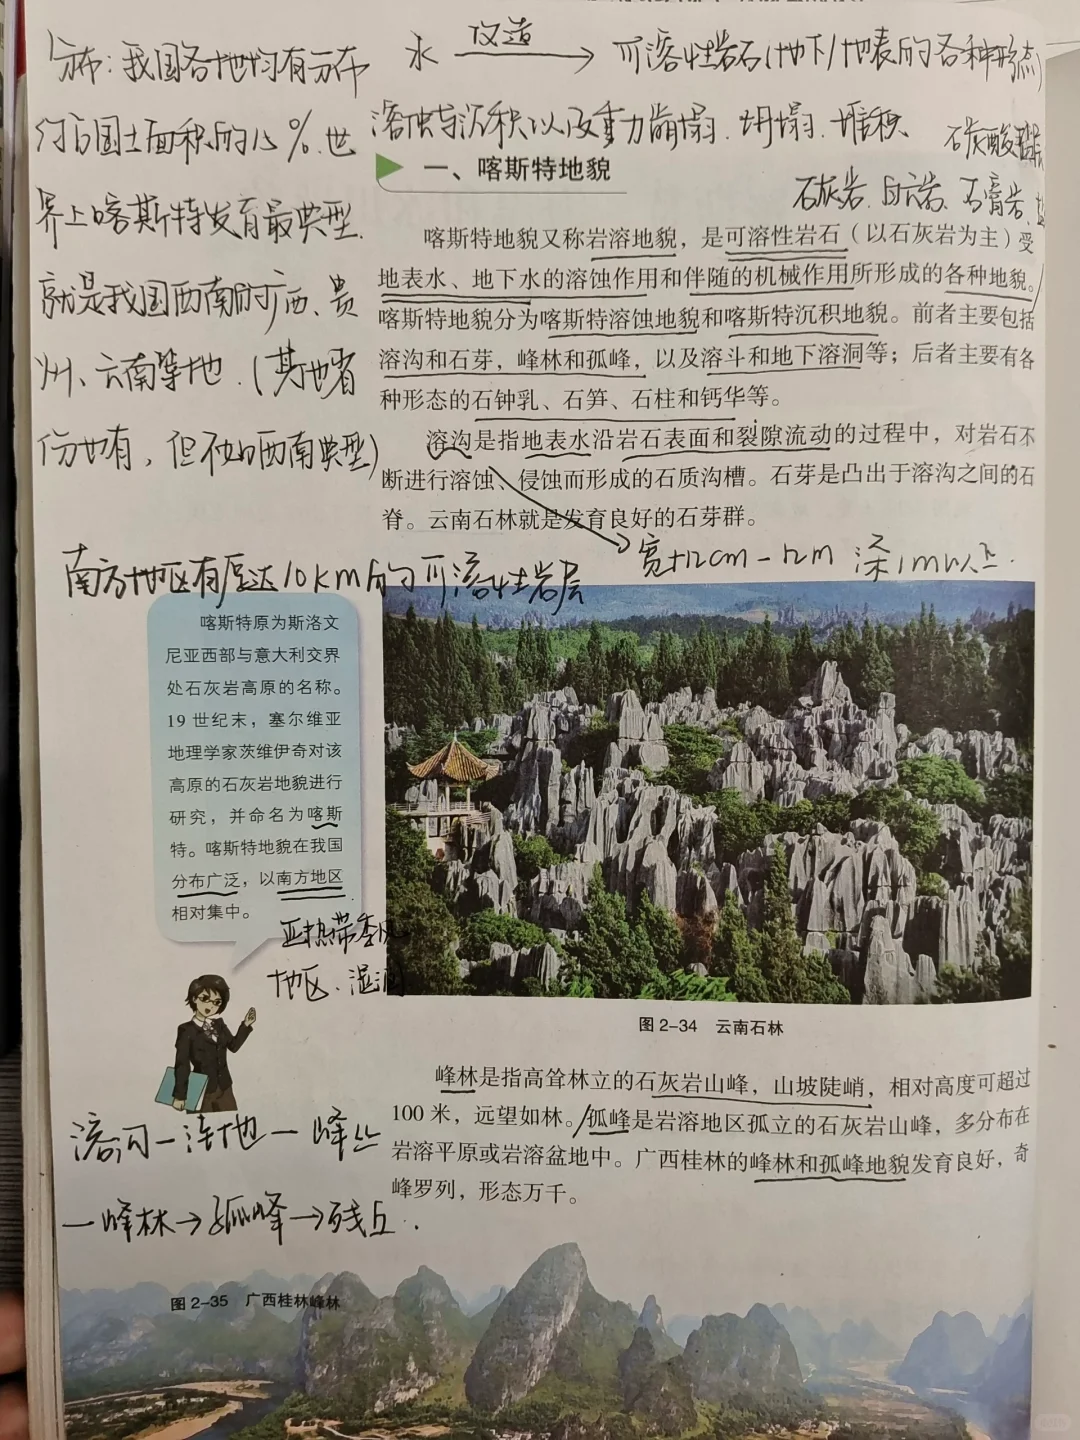 分布：我国各地均有分布
约占国土面积的15%.世
界上喀斯特发育最典型.
就是我国西南的广西、贵
州、云南等地.(其他省
份也有，但不如西南典型)
水 改造 可溶性岩石(地下/地表的各种形态)
溶蚀与沉积以及重力崩塌.坍塌.堆积
石炭酸盐
石灰岩.白云岩.石膏岩.
一、喀斯特地貌
喀斯特地貌又称岩溶地貌，是可溶性岩石（以石灰岩为主）受
地表水、地下水的溶蚀作用和伴随的机械作用所形成的各种地貌。
喀斯特地貌分为喀斯特溶蚀地貌和喀斯特沉积地貌。前者主要包括
溶沟和石芽，峰林和孤峰，以及溶斗和地下溶洞等；后者主要有各
种形态的石钟乳、石笋、石柱和钙华等。
溶沟是指地表水沿岩石表面和裂隙流动的过程中，对岩石不
断进行溶蚀、侵蚀而形成的石质沟槽。石芽是凸出于溶沟之间的石
脊。云南石林就是发育良好的石芽群。
宽十12cm-12m 深1m以上.
南方地区有厚达10km的可溶性岩层
喀斯特原为斯洛文
尼亚西部与意大利交界
处石灰岩高原的名称。
19世纪末，塞尔维亚
地理学家茨维伊奇对该
高原的石灰岩地貌进行
研究，并命名为喀斯
特。喀斯特地貌在我国
分布广泛，以南方地区
相对集中。
亚热带季风
地区.湿润
图2-34 云南石林
峰林是指高耸林立的石灰岩山峰，山坡陡峭，相对高度可超过
100米，远望如林。孤峰是岩溶地区孤立的石灰岩山峰，多分布在
岩溶平原或岩溶盆地中。广西桂林的峰林和孤峰地貌发育良好，奇
峰罗列，形态万千。
溶沟一洼地一峰丛
一峰林→孤峰→残丘.
图2-35 广西桂林峰林